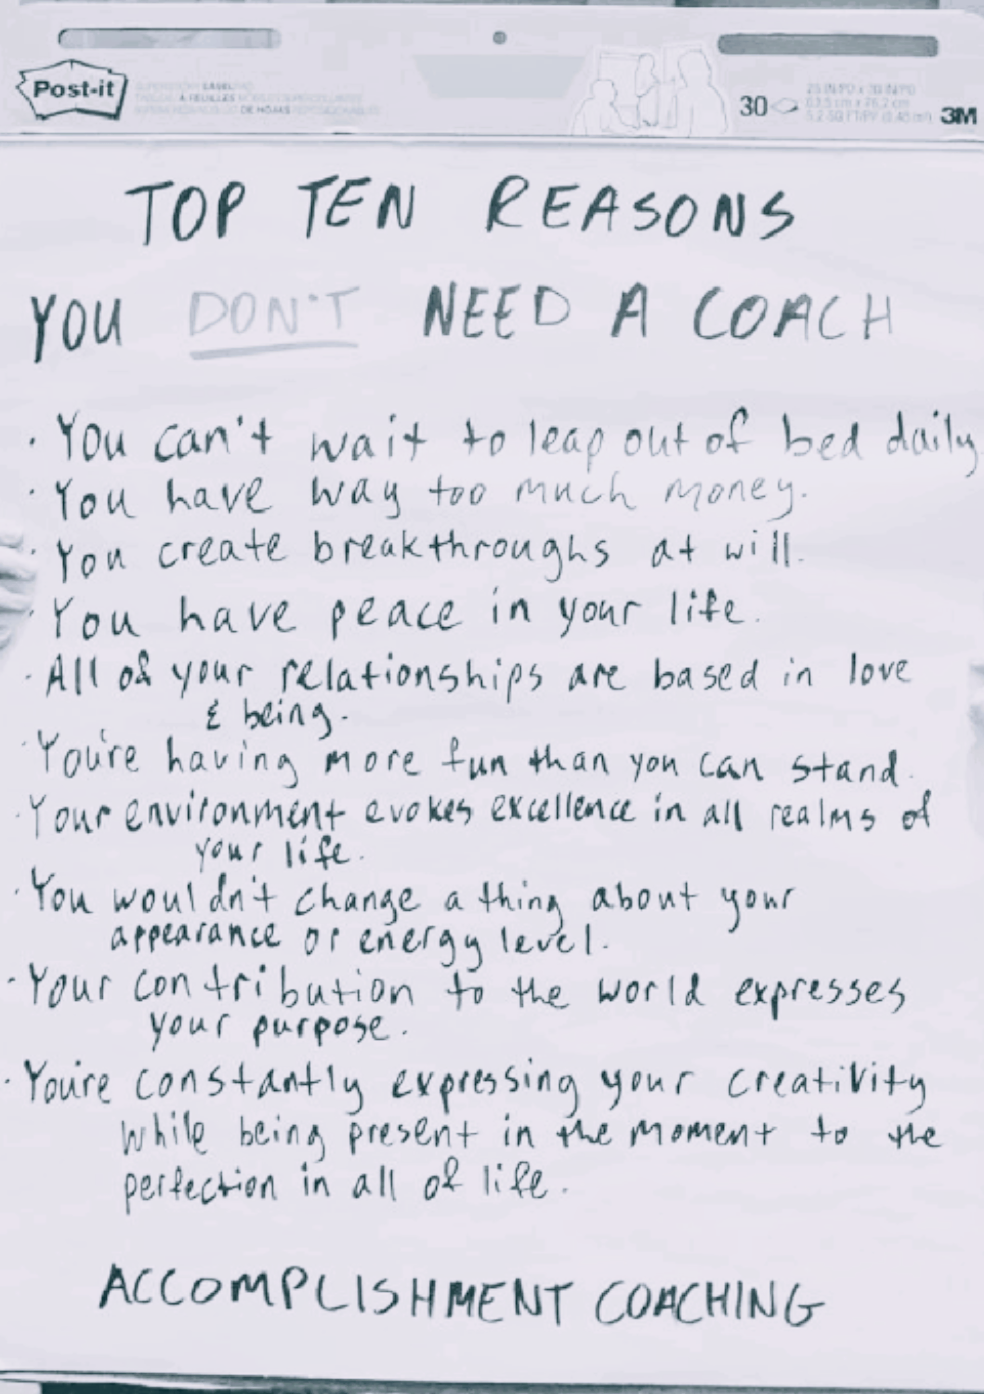 Post-it
30
3M
TOP TEN REASONS
YOU DON'T NEED A COACH
· You can't wait to leap out of bed daily.
· You have way too much money.
· You create breakthroughs at will.
· You have peace in your life.
· All of your relationships are based in love
& being.
· You're having more fun than you can stand.
· Your environment evokes excellence in all realms of
your life.
· You wouldn't change a thing about your
appearance or energy level.
· Your contribution to the world expresses
your purpose.
· You're constantly expressing your creativity
while being present in the moment to the
perfection in all of life.
ACCOMPLISHMENT COACHING